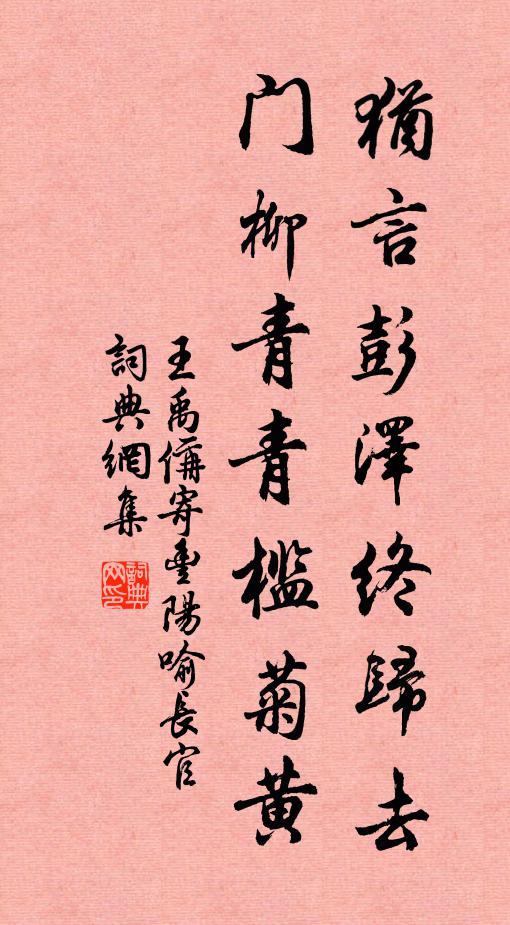 猶言彭澤終歸去
门柳青青檻菊黄
王禹偁寄豊陽喻長官
詞典網集
詞典网印